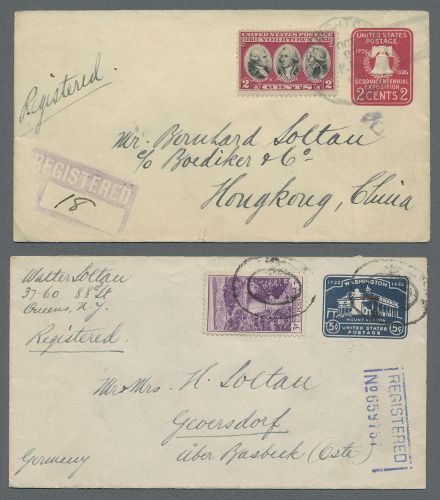 UNITED STATES POSTAGE
1781 YORKTOWN 1931
2 CENTS 2
UNITED STATES
POSTAGE
1776 1926
SESQUICENTENNIAL
EXPOSITION
2 CENTS 2
Registered.
Mr. Bernhard Soltau
c/o Boediker & Co.
Hongkong, China
REGISTERED
18
Walter Soltau
3760 88 St
Queens, N.Y.
Registered.
1732 WASHINGTON 1932
MOUNT VERNON
5¢ 5¢
UNITED STATES
POSTAGE
Mr & Mrs. H. Soltau
Geversdorf
über Basbeck (Oste)
Germany
REGISTERED